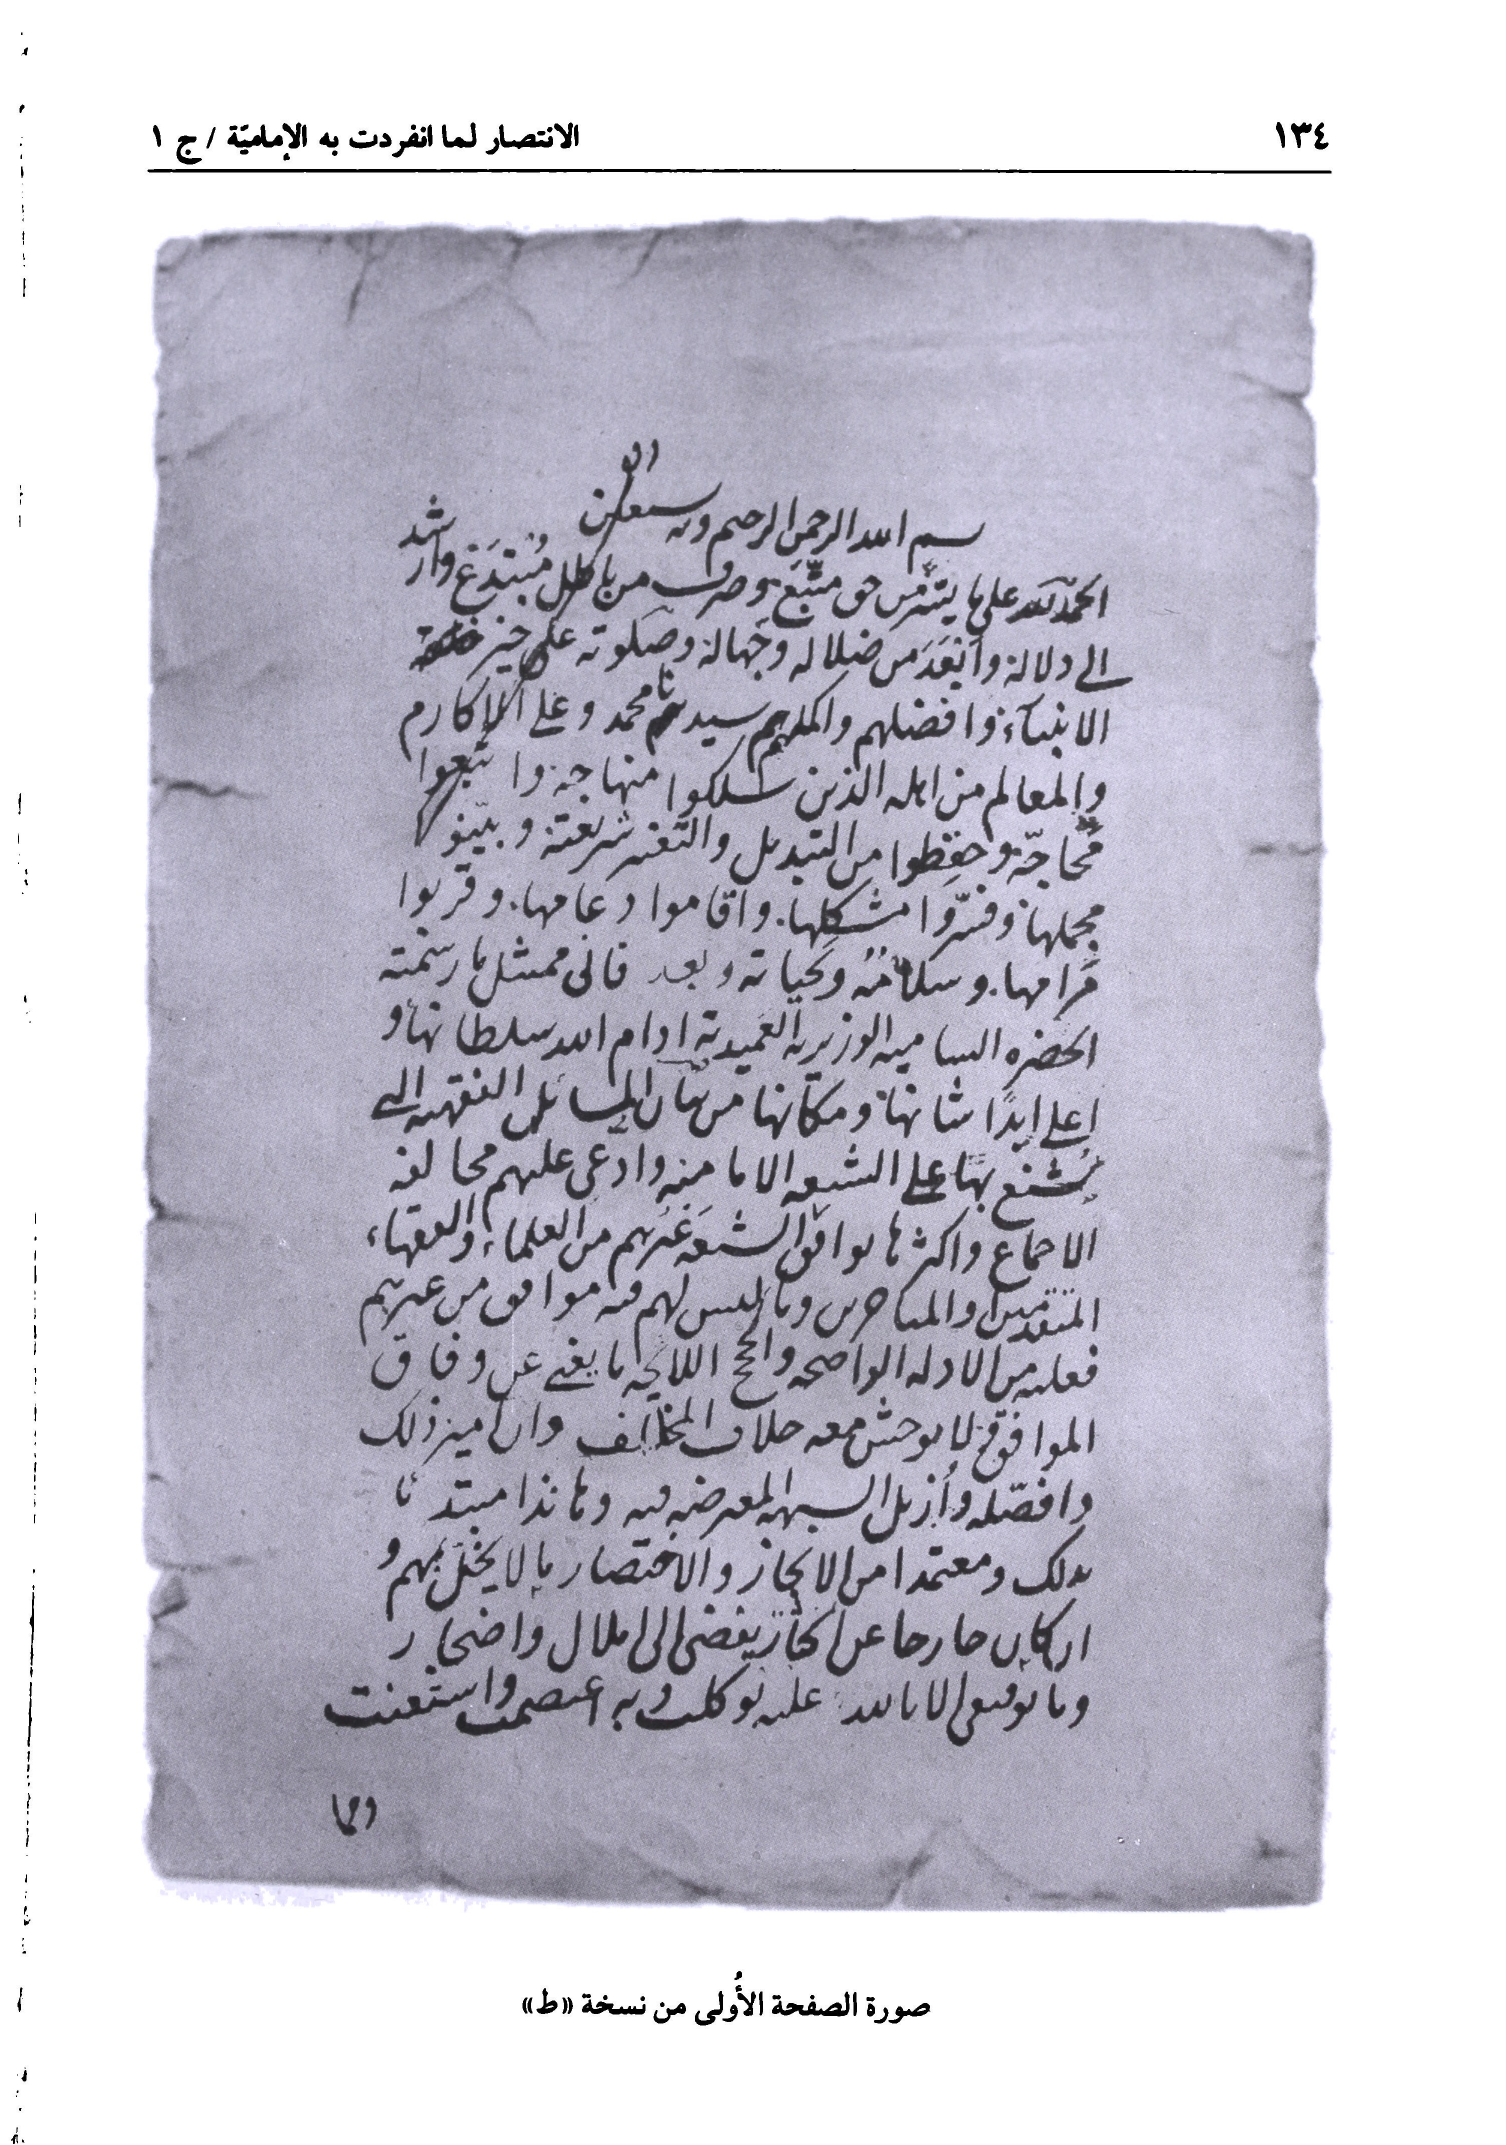 ١٣٤
الانتصار لما انفردت به الإماميّة / ج ١
بسم الله الرحمن الرحيم وبه نستعين
الحمد لله على ما يسّر من حق متّبع وصرف من باطل مبتدع وارشد
الى دلالة وانقذ من ضلالة وجهالة وصلوته على خير
الانبياء وافضلهم واكملهم سيدنا محمد وعلى الاكارم
والمعالم من اهله الذين سلكوا منهاجه واتبعوا
محاجّه وحفظوا من التبديل والتغير شريعته وبيّنوا
مجملها وفسّروا مشكلها واقاموا دعامها وقربوا
مرامها وسلامه وتحياته وبعد فانى ممتثل ما رسمته
الحضرة السامية الوزيرية العميدية ادام الله سلطانها و
اعلى ابدًا شانها ومكانها من بيان المسائل الفقهية التى
شنع بها على الشيعة الامامية وادعى عليهم مخالفة
الاجماع واكثرها يوافق الشيعة غيرهم من العلماء والفقهاء
المتقدمين والمتاخرين وما ليس لهم فيه موافق من غيرهم
فعليه من الادلة الواضحة والحجج اللايحة ما يغنى عن وفاق
الموافق لا يوحش معه خلاف المخالف وان ابين ذلك
وافصّله وأزيل الشبهة المعرضة فيه وها نذا مبتدئا
بذلك ومعتمدا من الايجاز والاختصار ما لا يخلّ بفهم و
ان كان خارجا عن اكثار يفضى الى املال واضجار
وما توفيقى الا بالله عليه توكلت وبه اعتصمت واستعنت
ومما
صورة الصفحة الأُولى من نسخة «ط»